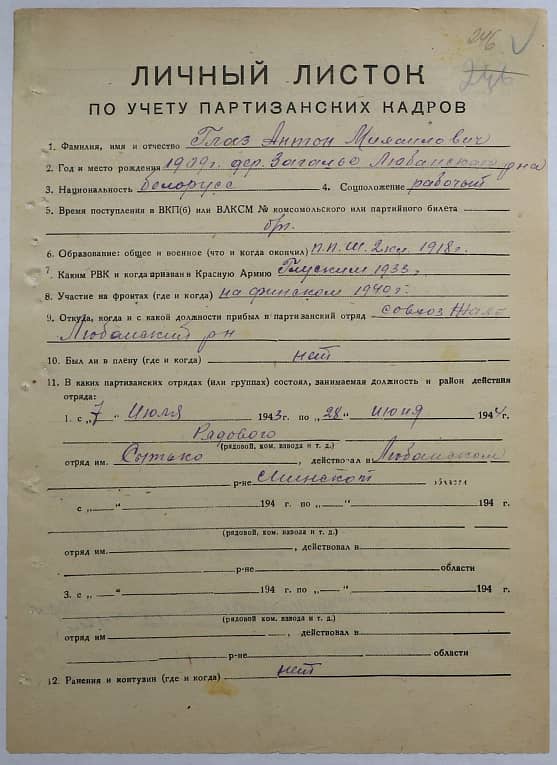 246
246
ЛИЧНЫЙ ЛИСТОК
ПО УЧЕТУ ПАРТИЗАНСКИХ КАДРОВ
1. Фамилия, имя и отчество Глаз Антон Михаилович
2. Год и место рождения 1909 г. дер. Загалье Любанского р-на
3. Национальность белорусс 4. Соцположение рабочий
5. Время поступления в ВКП(б) или ВЛКСМ № комсомольского или партийного билета
бп.
6. Образование: общее и военное (что и когда окончил) п.п.ш. 2 кл. 1918 г.
7. Каким РВК и когда призван в Красную Армию Глуским 1933 г.
8. Участие на фронтах (где и когда) на финском 1940 г.
9. Откуда, когда и с какой должности прибыл в партизанский отряд совхоз
Любанский рн
10. Был ли в плену (где и когда) нет
11. В каких партизанских отрядах (или группах) состоял, занимаемая должность и район действия
отряда:
1. с „7“ Июля 1943 г. по „28“ июня 1944 г.
Рядового
(рядовой, ком. взвода и т. д.)
отряд им. Сытько, действовал в Любанском
р-не Минской области
с „ “ 194 г. по „ “ 194 г.
(рядовой, ком. взвода и т. д.)
отряд им. , действовал в
р-не области
3. с „ “ 194 г. по „ “ 194 г.
(рядовой ком. взвода и т. д.)
отряд им , действовал в
р-не области
12. Ранения и контузии (где и когда) нет